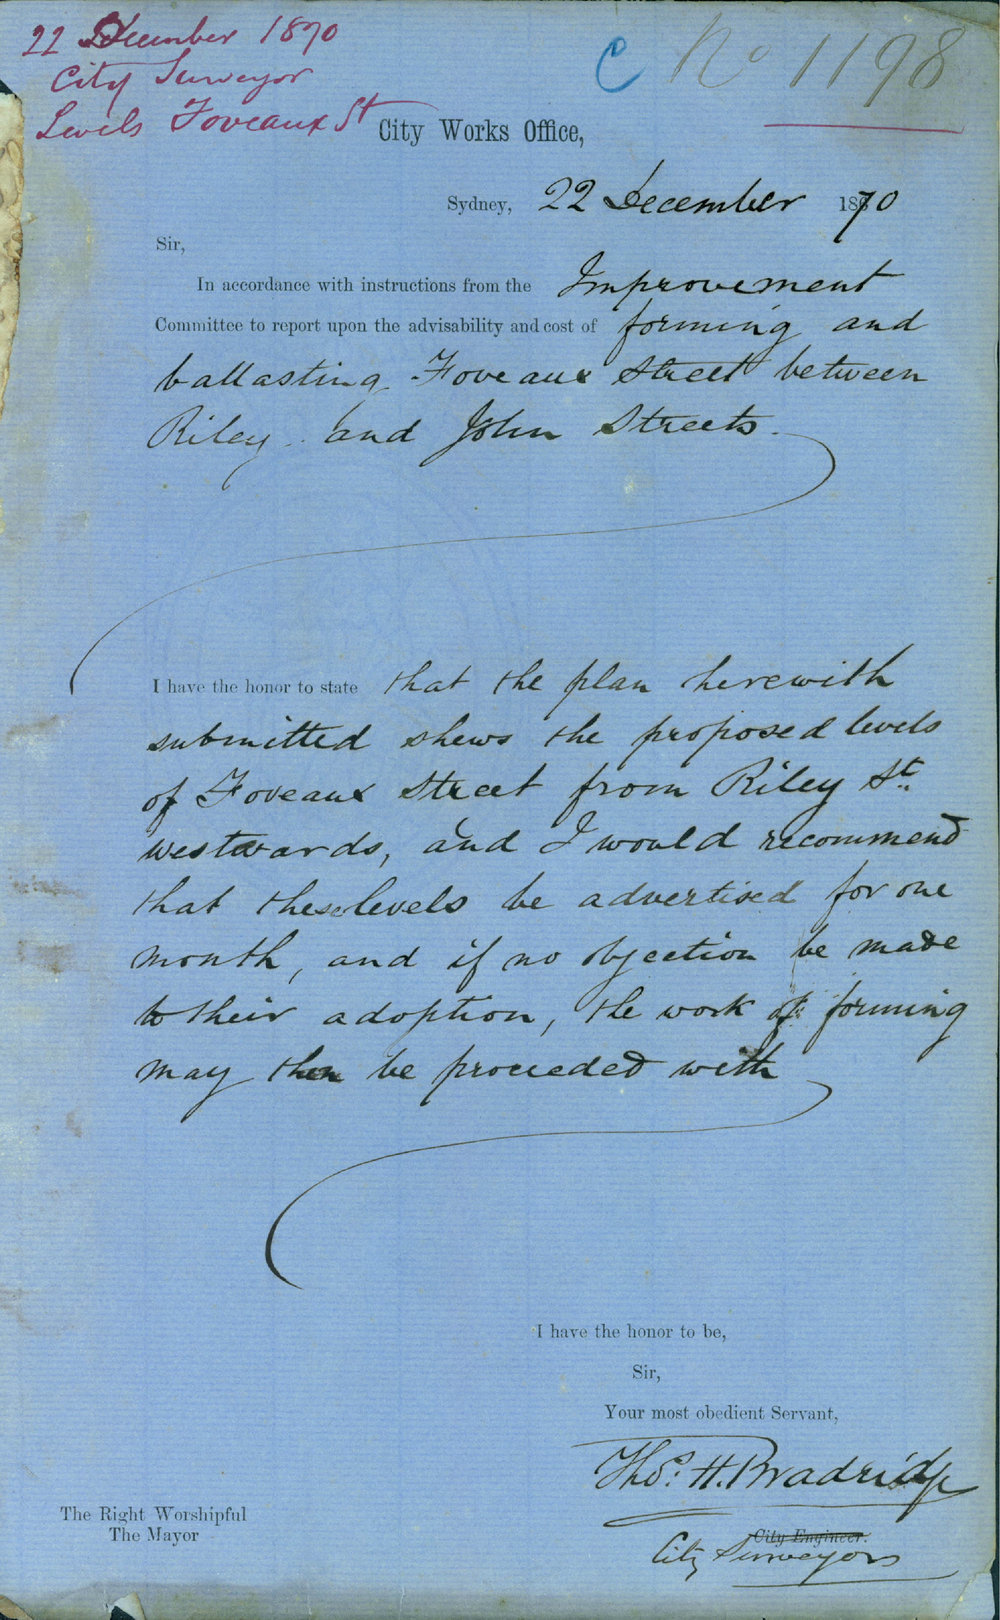 22 December 1870
City Surveyor
Levels Foveaux St
C No 1198
City Works Office,
Sydney, 22 December 1870
Sir,
In accordance with instructions from the Improvement
Committee to report upon the advisability and cost of forming and
ballasting Foveaux Street between
Riley and John Streets
I have the honor to state that the plan herewith
submitted shews the proposed levels
of Foveaux Street from Riley St.
westwards, and I would recommend
that these levels be advertised for one
month, and if no objection be made
to their adoption, the work of forming
may then be proceeded with
I have the honor to be,
Sir,
Your most obedient Servant,
Thos. H. Bradridge
City Engineer.
City Surveyor
The Right Worshipful
The Mayor